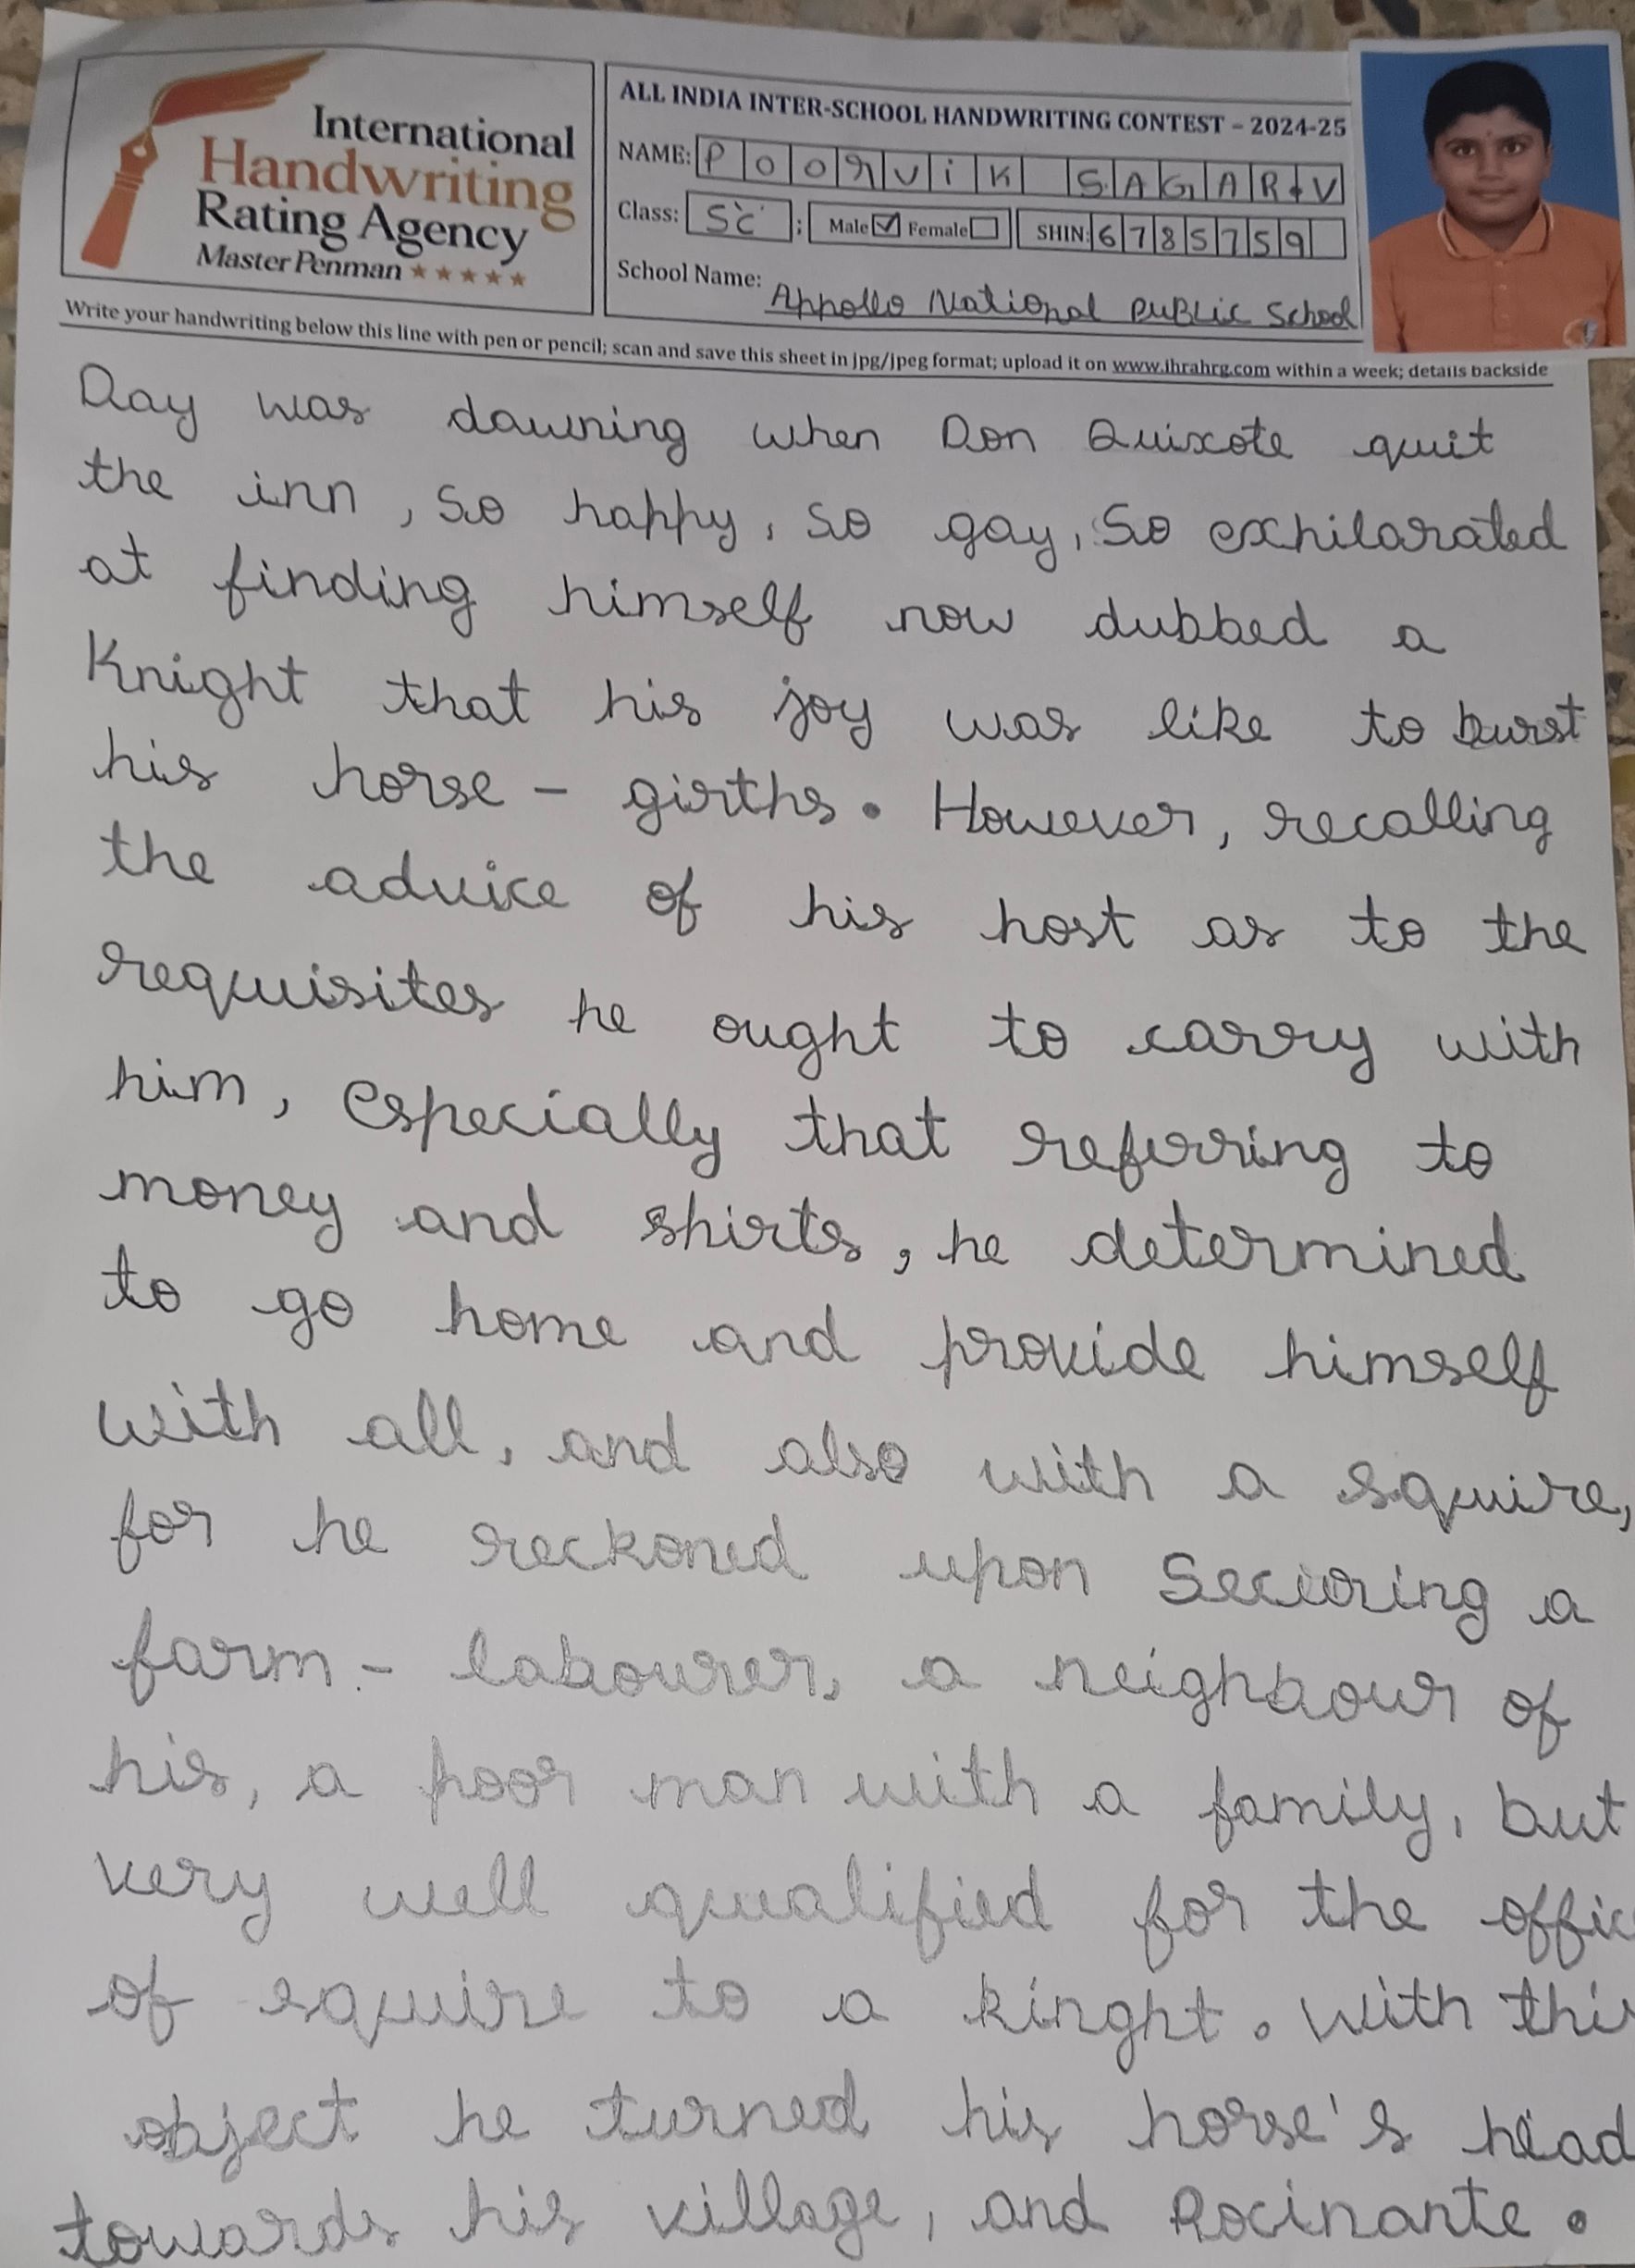 International
Handwriting
Rating Agency
Master Penman ★★★★★
ALL INDIA INTER-SCHOOL HANDWRITING CONTEST – 2024-25
NAME: Poorvik SAGAR V
Class: 5 'C' ; Male ☑ Female ☐ SHIN: 6785759
School Name: Appollo National PUBLic School
Write your handwriting below this line with pen or pencil; scan and save this sheet in jpg/jpeg format; upload it on www.ihrahrg.com within a week; details backside
Day was dawning when Don Quixote quit
the inn, so happy, so gay, so exhilarated
at finding himself now dubbed a
Knight that his joy was like to burst
his horse - girths. However, recalling
the advice of his host as to the
requisites he ought to carry with
him, especially that referring to
money and shirts, he determined
to go home and provide himself
with all, and also with a squire,
for he reckoned upon Securing a
farm - labourer, a neighbour of
his, a poor man with a family, but
very well qualified for the offic
of squire to a kinght. With this
object he turned his horse's head
towards his village, and Rocinante.